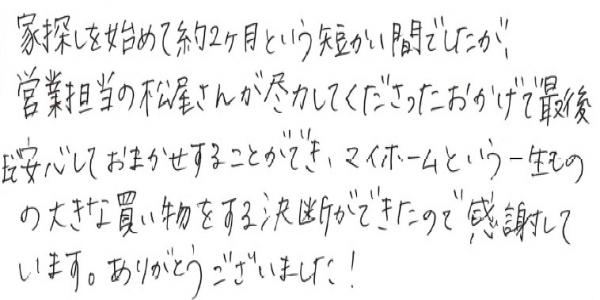 家探しを始めて約2ケ月という短かい間でしたが、
営業担当の松尾さんが尽力してくださったおかげで最後
迄安心しておまかせすることができ、マイホームという一生もの
の大きな買い物をする決断ができたので感謝して
います。ありがとうございました!